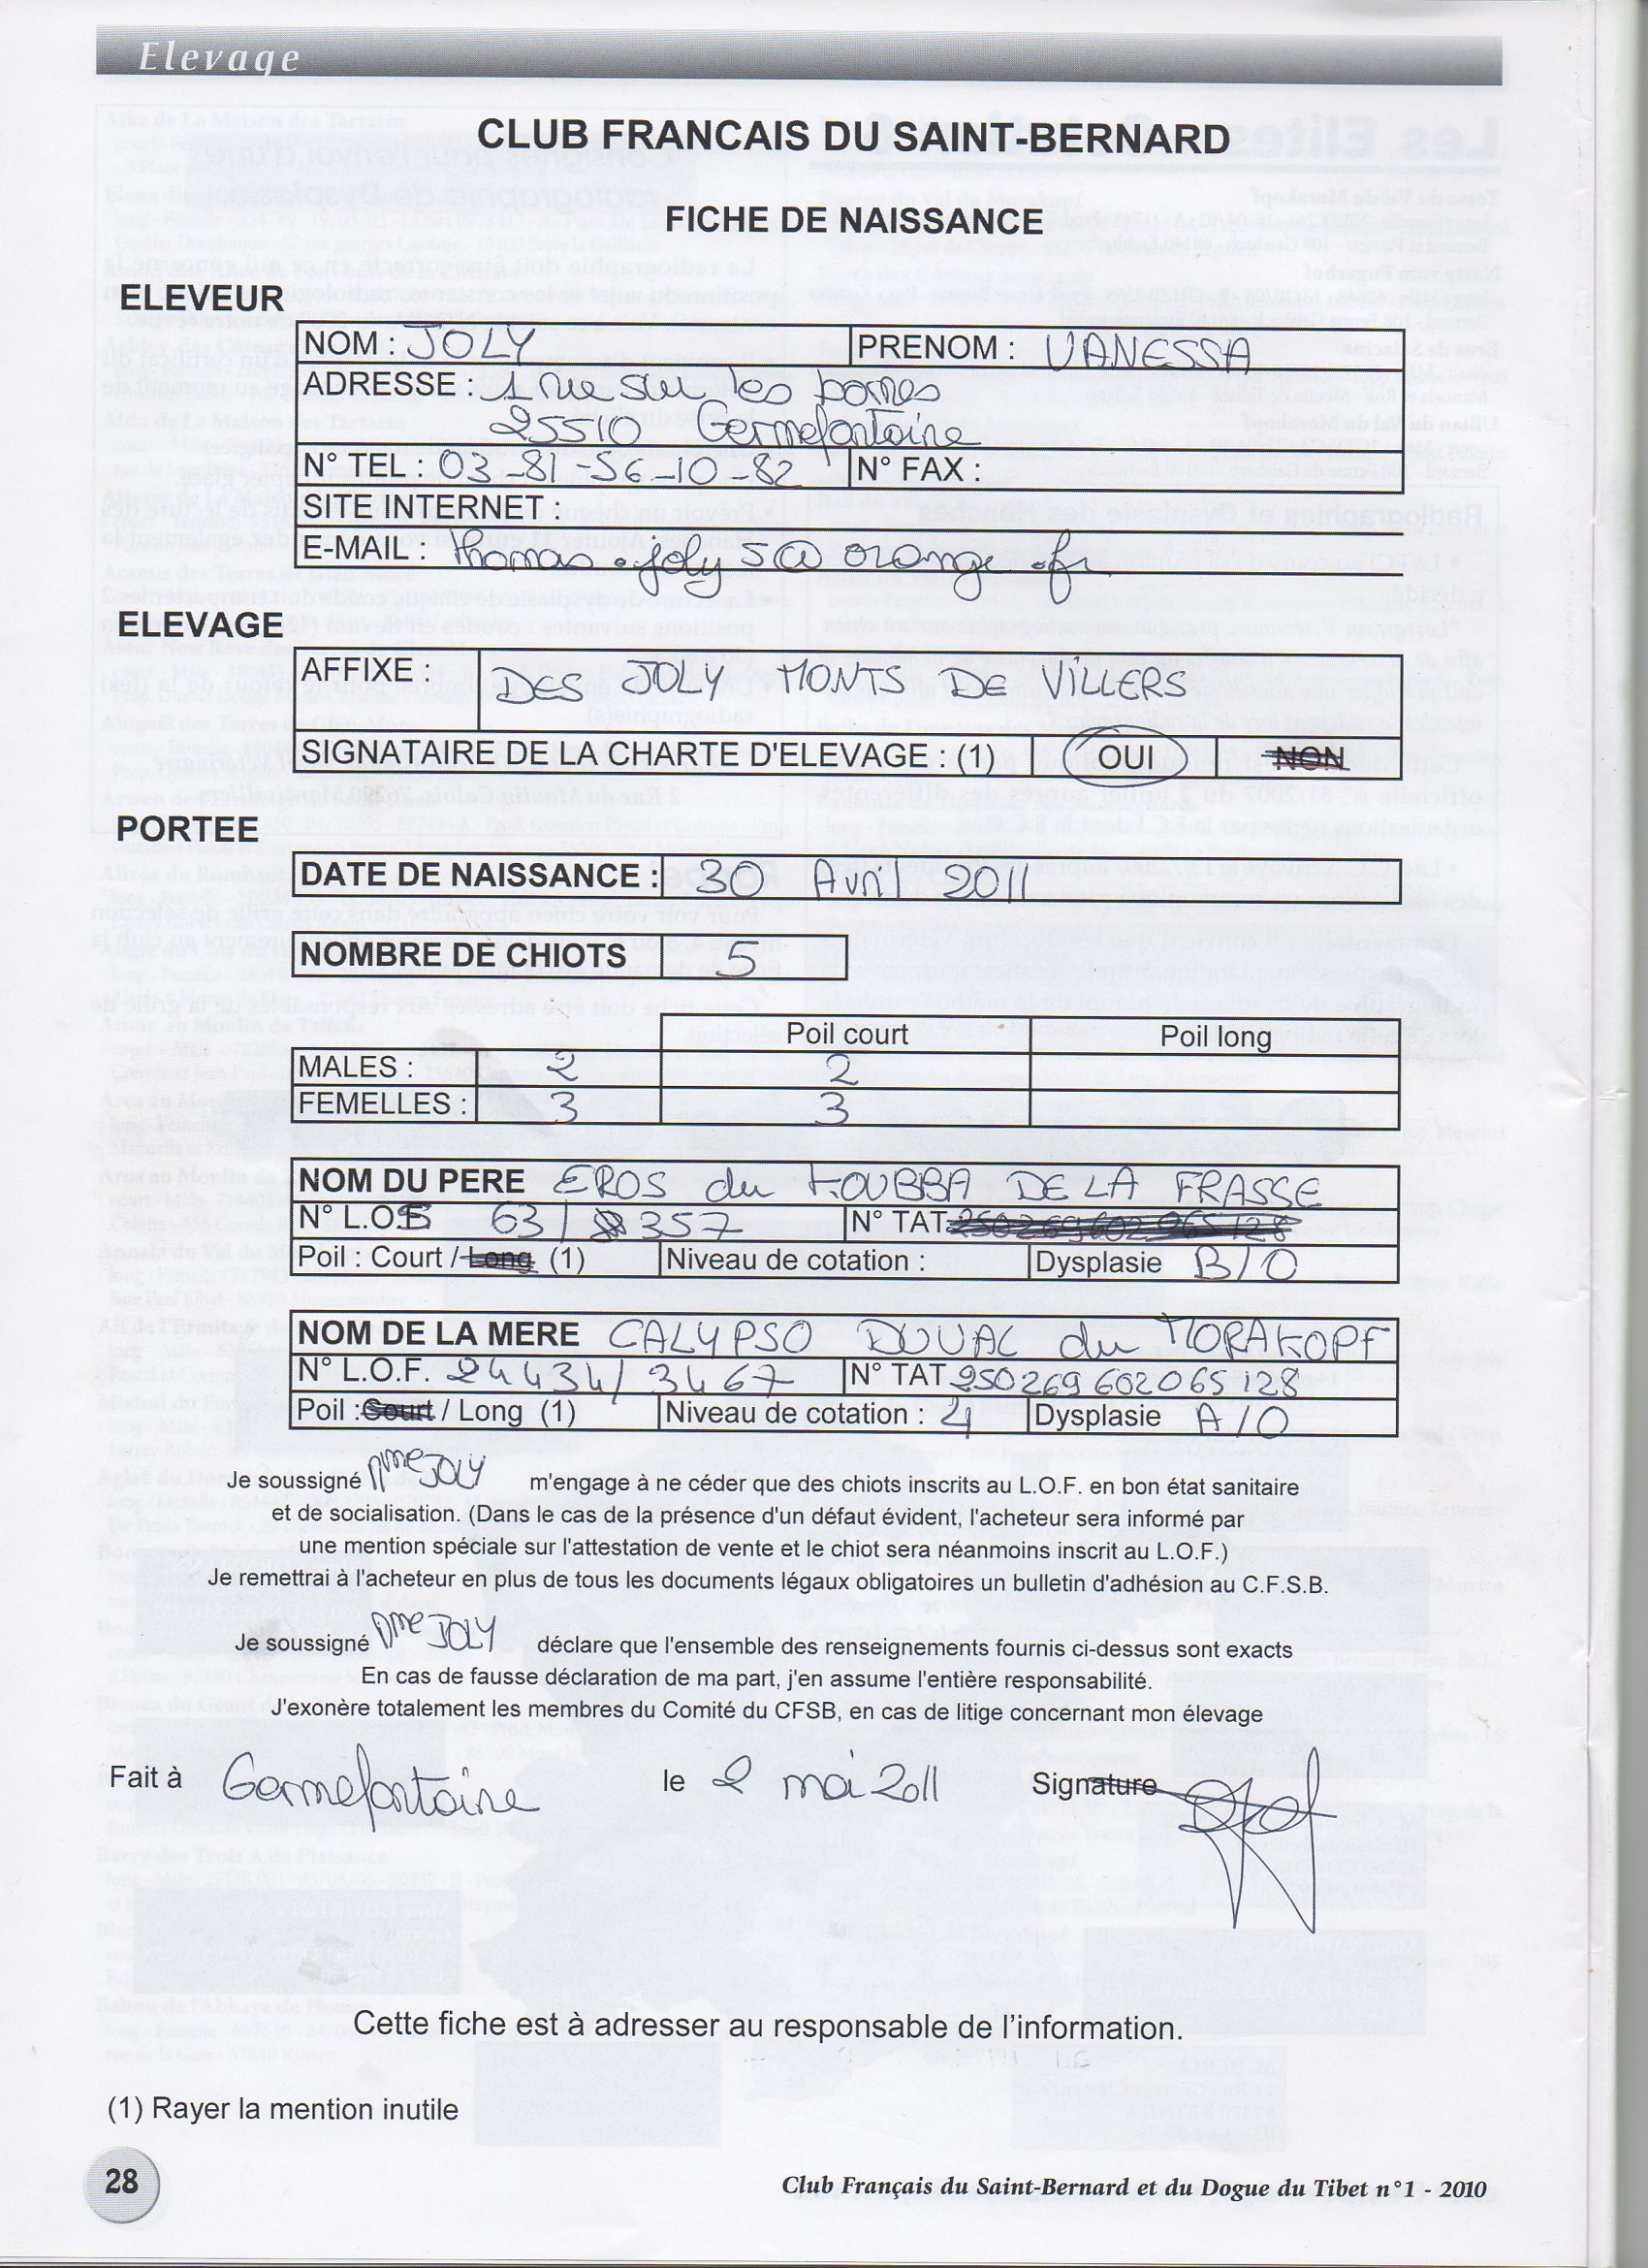 Elevage
CLUB FRANCAIS DU SAINT-BERNARD
FICHE DE NAISSANCE
ELEVEUR
NOM : JOLY PRENOM : VANESSA
ADRESSE : 1 rue sur les bornes
25510 Germefontaine
N° TEL : 03-81-56-10-82 N° FAX :
SITE INTERNET :
E-MAIL : thomas.joly5@orange.fr
ELEVAGE
AFFIXE : DES JOLY MONTS DE VILLERS
SIGNATAIRE DE LA CHARTE D'ELEVAGE : (1) OUI NON
PORTEE
DATE DE NAISSANCE : 30 Avril 2011
NOMBRE DE CHIOTS 5
Poil court Poil long
MALES : 2 2
FEMELLES : 3 3
NOM DU PERE EROS du KOUBBA DE LA FRASSE
N° L.O.S 631 357 N° TAT 250269602065128
Poil : Court / Long (1) Niveau de cotation : Dysplasie B/0
NOM DE LA MERE CALYPSO DOUAL du MORAKOPF
N° L.O.F. 24434/3467 N° TAT 250269602065128
Poil : Court / Long (1) Niveau de cotation : 4 Dysplasie A/0
Je soussigné Mme JOLY m'engage à ne céder que des chiots inscrits au L.O.F. en bon état sanitaire
et de socialisation. (Dans le cas de la présence d'un défaut évident, l'acheteur sera informé par
une mention spéciale sur l'attestation de vente et le chiot sera néanmoins inscrit au L.O.F.)
Je remettrai à l'acheteur en plus de tous les documents légaux obligatoires un bulletin d'adhésion au C.F.S.B.
Je soussigné Mme JOLY déclare que l'ensemble des renseignements fournis ci-dessus sont exacts
En cas de fausse déclaration de ma part, j'en assume l'entière responsabilité.
J'exonère totalement les membres du Comité du CFSB, en cas de litige concernant mon élevage
Fait à Germefontaine le 2 mai 2011 Signature
Cette fiche est à adresser au responsable de l'information.
(1) Rayer la mention inutile
28 Club Français du Saint-Bernard et du Dogue du Tibet n°1 - 2010